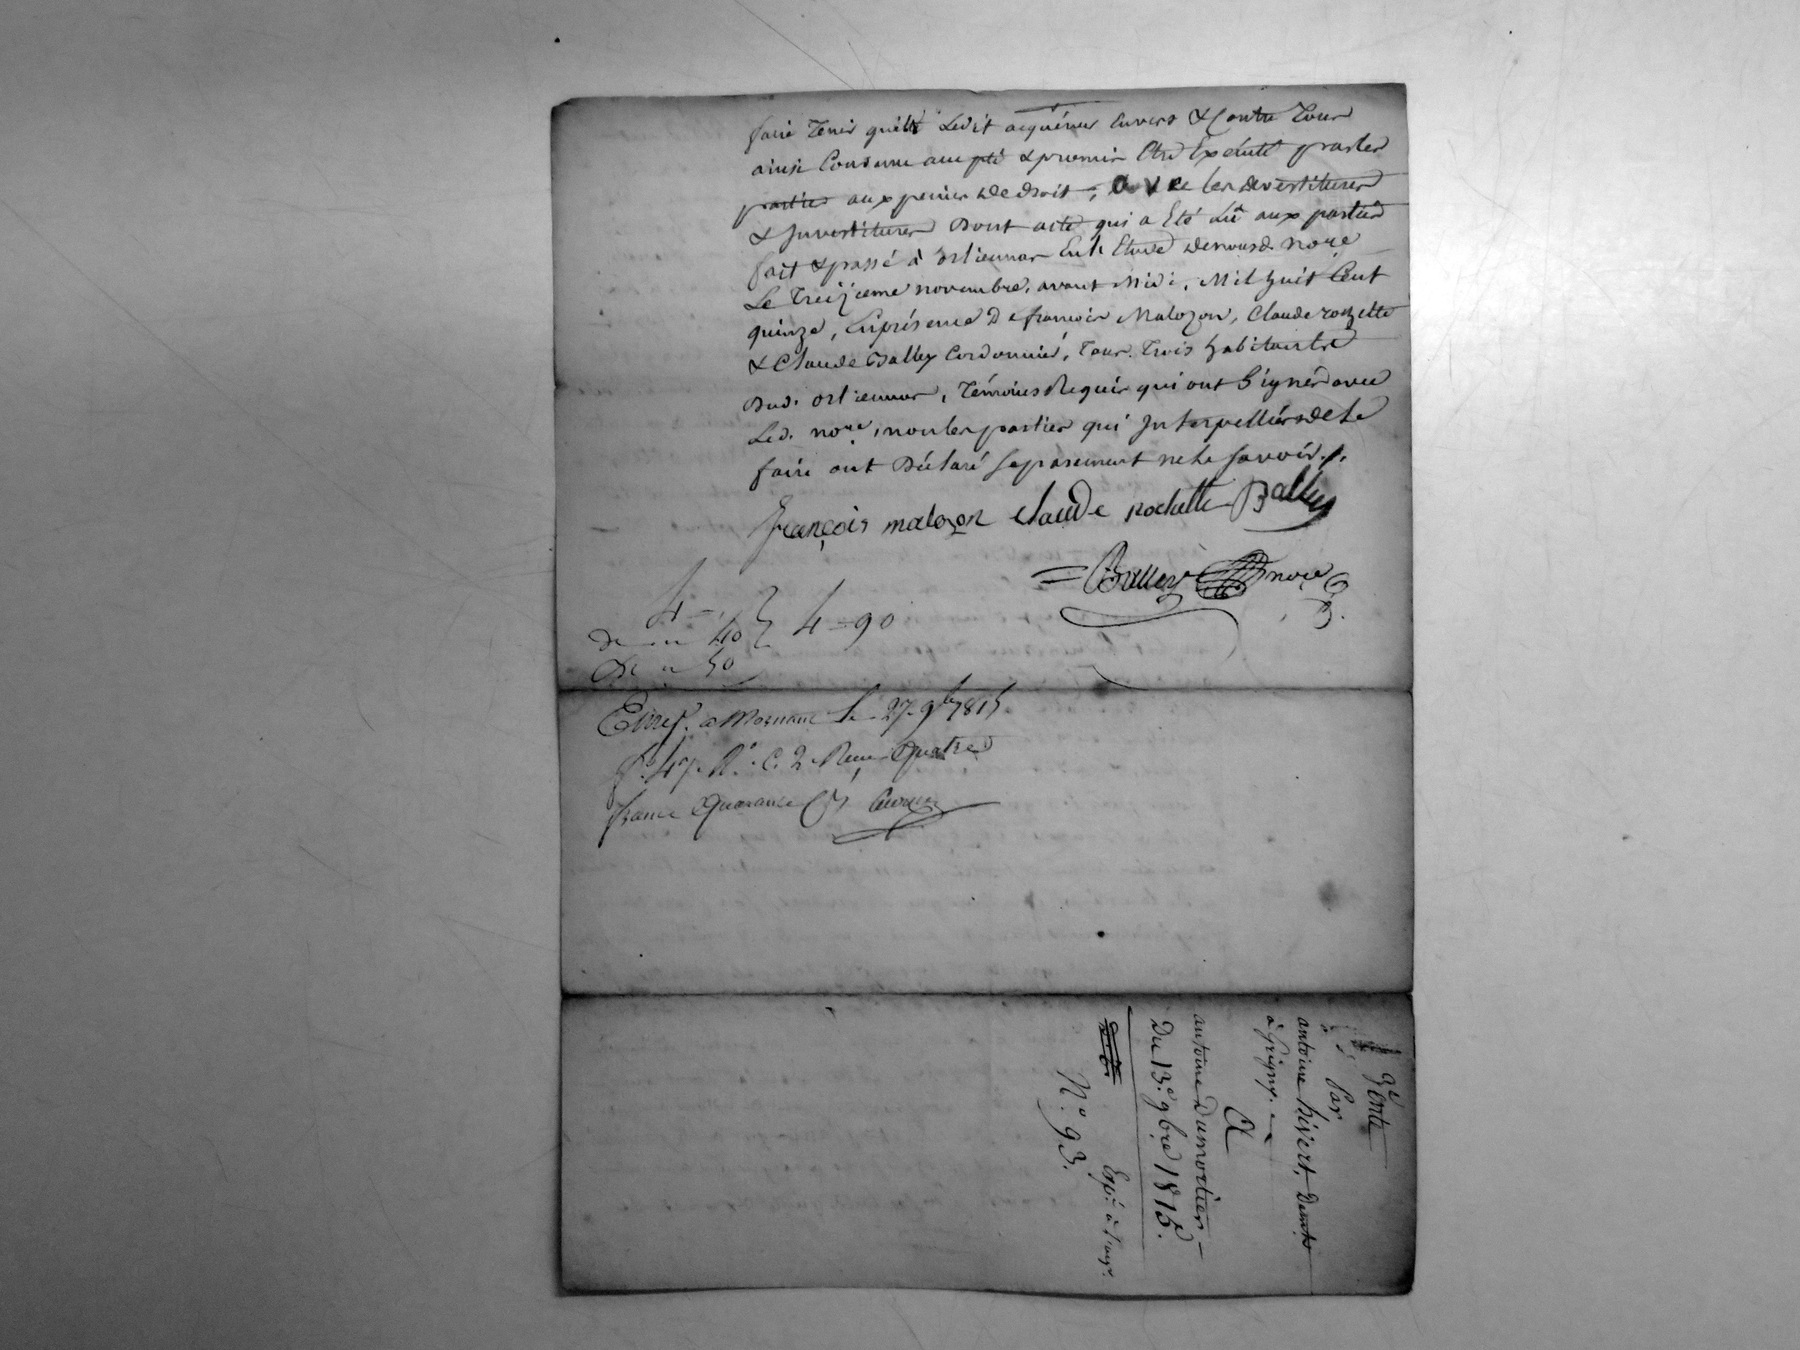 faire tenir quitte Ledit acquéreur Envers & Contre Tous
ainsi Convenu accepté & promis Etre Exécuté par les
parties aux peines de droit, avec les devestitures
& Investitures Dont acte qui a Eté Lû aux parties
fait & passé à orlienas En l'Etude de nousd. nore.
Le Treizieme novembre, avant Midi, Mil huit Cent
quinze, En présence De francois Malozon, Claude rochette
& Claude Balley Cordonnier, Tous Trois habitants
Dud. orlienas, Témoins Requis qui ont Signés avec
Led. nore. non les parties qui Interpellées de Le
faire ont Déclaré séparément ne le savoir./.
françois malozon Claude Rochette Balley
nore
4 =
De 40 } 4 = 90
De 50
Enreg. a Mornant le 27 9bre 1815
fo. 47 Ro. C. 2 Reçu Quatre
francs Quarante
Vente
Par
antoine hivert, Dem.t
à Grigny.
A
antoine Dumortier
Du 13.e 9bre 1815.
Exp.
No. 93.